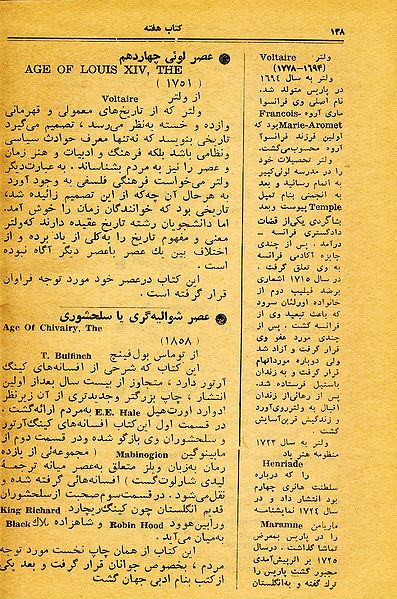 کتاب هفته
۱۳۸
● عصر لوئی چهاردهم
AGE OF LOUIS XIV, THE
(۱۷۵۱)
از ولتر Voltaire
ولتر که از تاریخ‌های معمولی و قهرمانی
وازده و خسته به‌نظر می‌رسد ، تصمیم می‌گیرد
تاریخی بنویسد که نه‌تنها معرف حوادث سیاسی
ونظامی باشد بلکه فرهنگ و ادبیات و هنر زمان
و عصر را نیز به مردم بشناساند . به عبارت‌دیگر
ولتر می‌خواست فرهنگی فلسفی به وجود آورد.
به هرحال آن چه‌که از این تصمیم زائیده شد،
تاریخی بود که خوانندگان زمان را خوش آمد.
اما دانشجویان رشته تاریخ عقیده دارند که‌ولتر
معنی و مفهوم تاریخ را به‌کلی از یاد برده و از
اختلاف بین یک عصر باعصر دیگر آگاه نبوده
است .
این کتاب درعصر خود مورد توجه فراوان
قرار گرفته است .
● عصر شوالیه‌گری یا سلحشوری
Age Of Chivairy, The
(۱۸۵۸)
از توماس بول‌فینچ T. Bulfinch
این کتاب که شرحی از افسانه‌های کینگ
آرتور دارد ، متجاوز از بیست سال بعداز اولین
انتشار ، چاپ بزرگتر وجدیدتری از آن زیرنظر
ادوارد اورت‌هیل E.E. Hale به‌مردم ارائه‌گشت .
در قسمت اول این‌کتاب افسانه‌های کینگ‌آرتور
و سلحشوران وی بازگو شده ودر قسمت دوم از
مابینوگین Mabinogion ( مجموعه‌ئی از یازده
رمان به‌زبان ویلز متعلق به‌عصر میانه ترجمهٔ
لیدی شارلوت‌گست ) افسانه‌هائی گرفته شده و
نقل‌می‌شود . درقسمت‌سوم‌صحبت ازسلحشوران
قدیم انگلستان چون کینگ‌ریچارد King Richard
ورابین‌هوود Robin Hood و شاهزاده بلاك Black
به‌میان می‌آید .
این کتاب از همان چاپ نخست مورد توجه
مردم ، بخصوص جوانان قرار گرفت و بعد یکی
ازکتب بنام ادبی جهان گشت
ولتر Voltaire
(۱۶۹۴–۱۷۷۸)
ولتر به سال ۱۶۹۴
در پاریس متولد شد.
نام اصلی وی فرانسوا
ماری آروه Francois-
Marie-Aromet بود که
اولین فرزند فرانسوآ
آروه محسوب‌می‌گشت.
ولتر تحصیلات خود
را در مدرسه لوئی‌کبیر
به اتمام رسانید و بعد
به انجمنی بنام تمپل
Temple پیوست وبعد
شاگردی یکی‌از قضات
دادگستری فرانسه –
درآمد . پس از چندی
جایزه آکادمی فرانسه
به وی تعلق گرفت .
در سال ۱۷۱۵ اشعاری
برضد فیلیپ دوم از
خانواده اورلئان سرود
که باعث تبعید وی از
فرانسه گشت . پس از
چندی مورد عفو وی
قرار گرفت و آزاد شد
ولی دوباره موردانهام
قرار گرفت و به زندان
باستیل فرستاده شد.
پس از رهائی‌از زندان
اقبال به ولتر‌روی‌آورد
و زندگیش قرین‌آسایش
گشت .
ولتر به سال ۱۷۲۲
منظومه هنر یاد
Henriade
را که درباره
سلطنت هانری چهارم
بود انتشار داد و در
سال ۱۷۲۴ نمایشنامه
ماریامن Maramne
را در پاریس بمعرض
تماشا گذاشت . درسال
۱۷۲۵ بر اثرپیش‌آمدی
مجبور گشت پاریس را
ترك گفته و به‌انگلستان